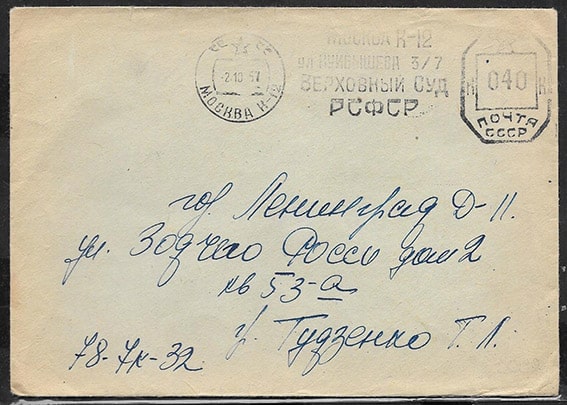 СССР
-2.10.57
МОСКВА К-12
МОСКВА К-12
УЛ. КУЙБЫШЕВА 3/7
ВЕРХОВНЫЙ СУД
РСФСР
К 040 К
ПОЧТА
СССР
гор. Ленинград Д-11.
ул. Зодчего Росси дом 2
кв 53-а
гр. Гудзенко Т. Л.
78-7к-32